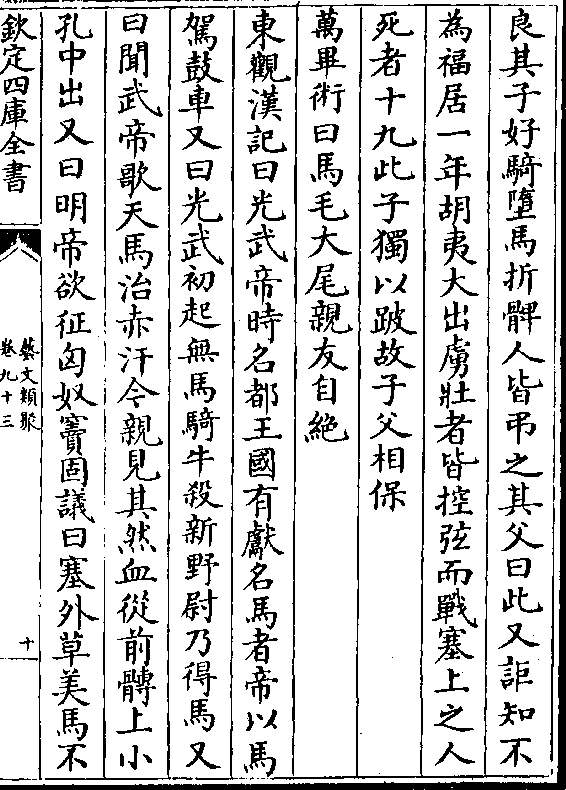 良其子好騎墮馬折髀人皆弔之其父曰此又詎知不
為福居一年胡夷大出虜壯者皆控弦而戰塞上之人
死者十九此子獨以跛故子父相保
萬畢術曰馬毛大尾親友自絶
東觀漢記曰光武帝時名都王國有獻名馬者帝以馬
駕鼓車又曰光武初起無馬騎牛殺新野尉乃得馬又
曰聞武帝歌天馬沾赤汗今親見其然血從前髆上小
孔中出又曰明帝欲征匈奴竇固議曰塞外草美馬不
欽定四庫全書
藝文類聚
卷九十三
十